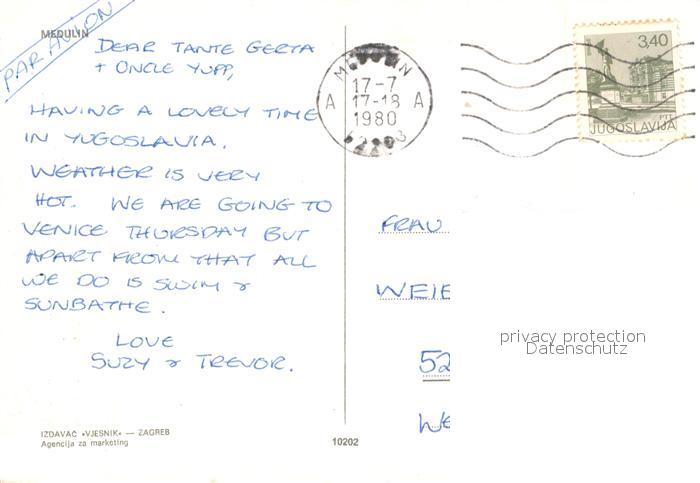 MEDULIN
PAR AVION
DEAR TANTE GERTA
+ ONCLE YUPP,
HAVING A LOVELY TIME
IN YUGOSLAVIA.
WEATHER IS VERY
HOT. WE ARE GOING TO
VENICE THURSDAY BUT
APART FROM THAT ALL
WE DO IS SWIM &
SUNBATHE.
LOVE
SUZY & TREVOR.
IZDAVAČ »VJESNIK« — ZAGREB
Agencija za marketing
10202
17-7
A 17-18 A
1980
3,40
PTT
JUGOSLAVIJA
FRAU
WEIE
52
WE
privacy protection
Datenschutz